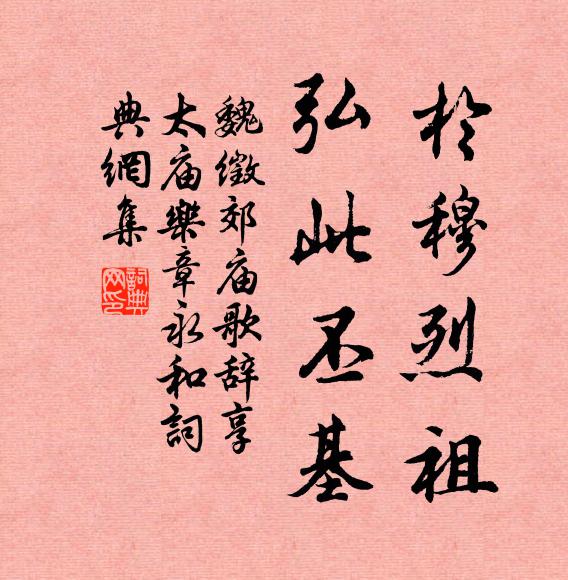 於穆烈祖
弘此丕基
魏徵郊庙歌辞享
太庙樂章永和詞
典網集
詞典网印